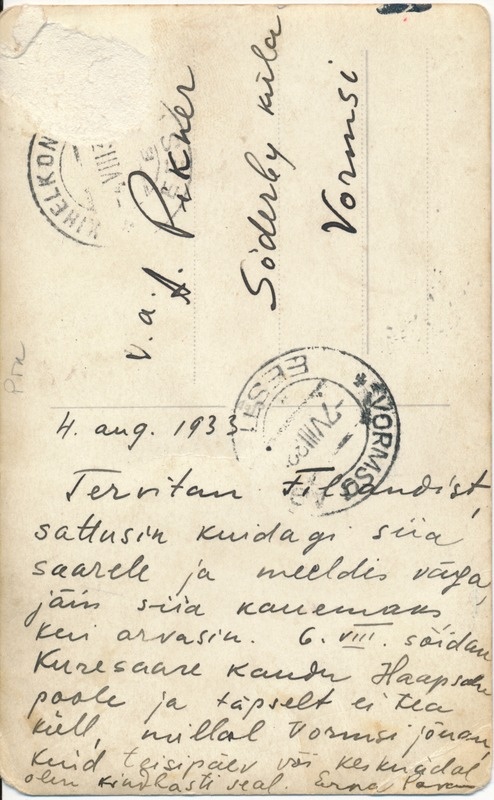 v. a. A. Pikner
Söderby küla
Vormsi
KIHELKON
EESTI
VORMSI
EESTI
4. aug. 1933
Tervitan Filsandist,
sattusin kuidagi siia
saarele ja meeldis väga,
jäin siia kauemaks,
kui arvasin. 6. VIII. sõidan
Kuresaare kaudu Haapsalu
poole ja täpselt ei tea
küll, millal Vormsi jõuan,
kuid teisipäev või kesknädal
olen kindlasti seal. Erna